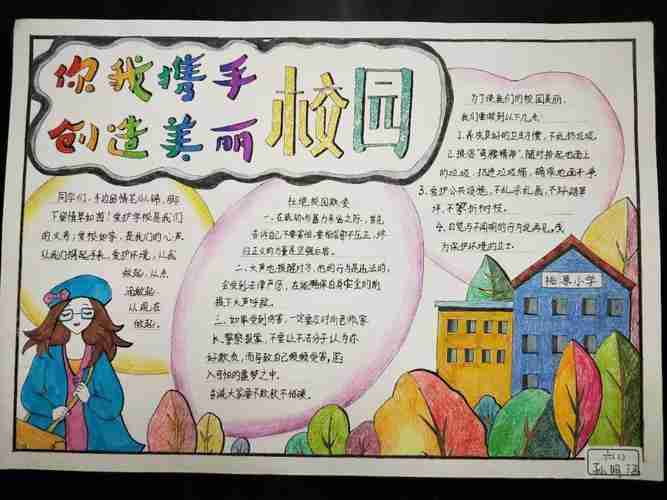 你我携手
创造美丽
校园
同学们，手边留情花似锦，脚
下留情草如茵！爱护学校是我们
的义务；爱校如家，是我们的心声
让我们携起手来，爱护环境，从我
做起，从点
滴做起
从现在
做起。
杜绝校园欺凌
一、在欺凌与暴力来临之际，首先
告诉自己不要害怕，要相信邪不压正，终
归正义的力量是坚强后盾。
二、大声地提醒对方，他们的行为是违法的，
会受到法律严厉，在能确保自身安全的前
提下大声呼救。
三、如果受到伤害，一定要及时向老师家
长、警察报案，不要让不法分子认为你
好欺负，而导致自己频频受害，陷
入可怕的噩梦之中。
告诫大家要不欺软不怕硬。
为了使我们的校园美丽，
我们要做到以下几点
1.养成良好的卫生习惯，不乱扔垃圾。
2.提倡"弯腰精神"，随时捡起地面上
的垃圾，扔进垃圾桶，确保地面干净
3.爱护公共设施，不乱涂乱画，不踩踏草
坪，不攀折树枝。
4.自觉与不文明的行为说再见。成
为保护环境的卫士。
小学
六(1)